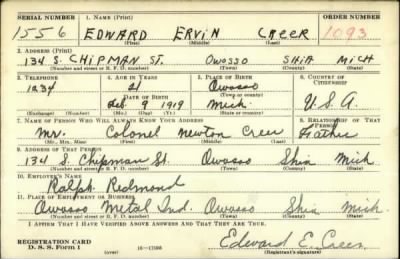 SERIAL NUMBER 1. NAME (Print) ORDER NUMBER
1556 EDWARD ERVIN CREER 1093
(First) (Middle) (Last)
2. ADDRESS (Print)
134 S. CHIPMAN ST. OWOSSO SHIA MICH
(Number and street or R. F. D. number) (Town) (County) (State)
3. TELEPHONE 4. AGE IN YEARS 5. PLACE OF BIRTH 6. COUNTRY OF CITIZENSHIP
1234 21 Owosso
(Town or county)
DATE OF BIRTH
Feb. 9 1919 Mich. U.S.A.
(Exchange) (Number) (Mo.) (Day) (Yr.) (State or country)
7. NAME OF PERSON WHO WILL ALWAYS KNOW YOUR ADDRESS 8. RELATIONSHIP OF THAT PERSON
Mr. Colonel Newton Creer Father
(Mr., Mrs., Miss) (First) (Middle) (Last)
9. ADDRESS OF THAT PERSON
134 S. Chipman St. Owosso Shia Mich
(Number and street or R. F. D. number) (Town) (County) (State)
10. EMPLOYER'S NAME
Ralph Redmond
11. PLACE OF EMPLOYMENT OR BUSINESS
Owosso Metal Ind. Owosso Shia Mich.
(Number and street or R. F. D. number) (Town) (County) (State)
I AFFIRM THAT I HAVE VERIFIED ABOVE ANSWERS AND THAT THEY ARE TRUE.
REGISTRATION CARD
D. S. S. Form 1 (over) Edward E. Creer
(Registrant's signature)